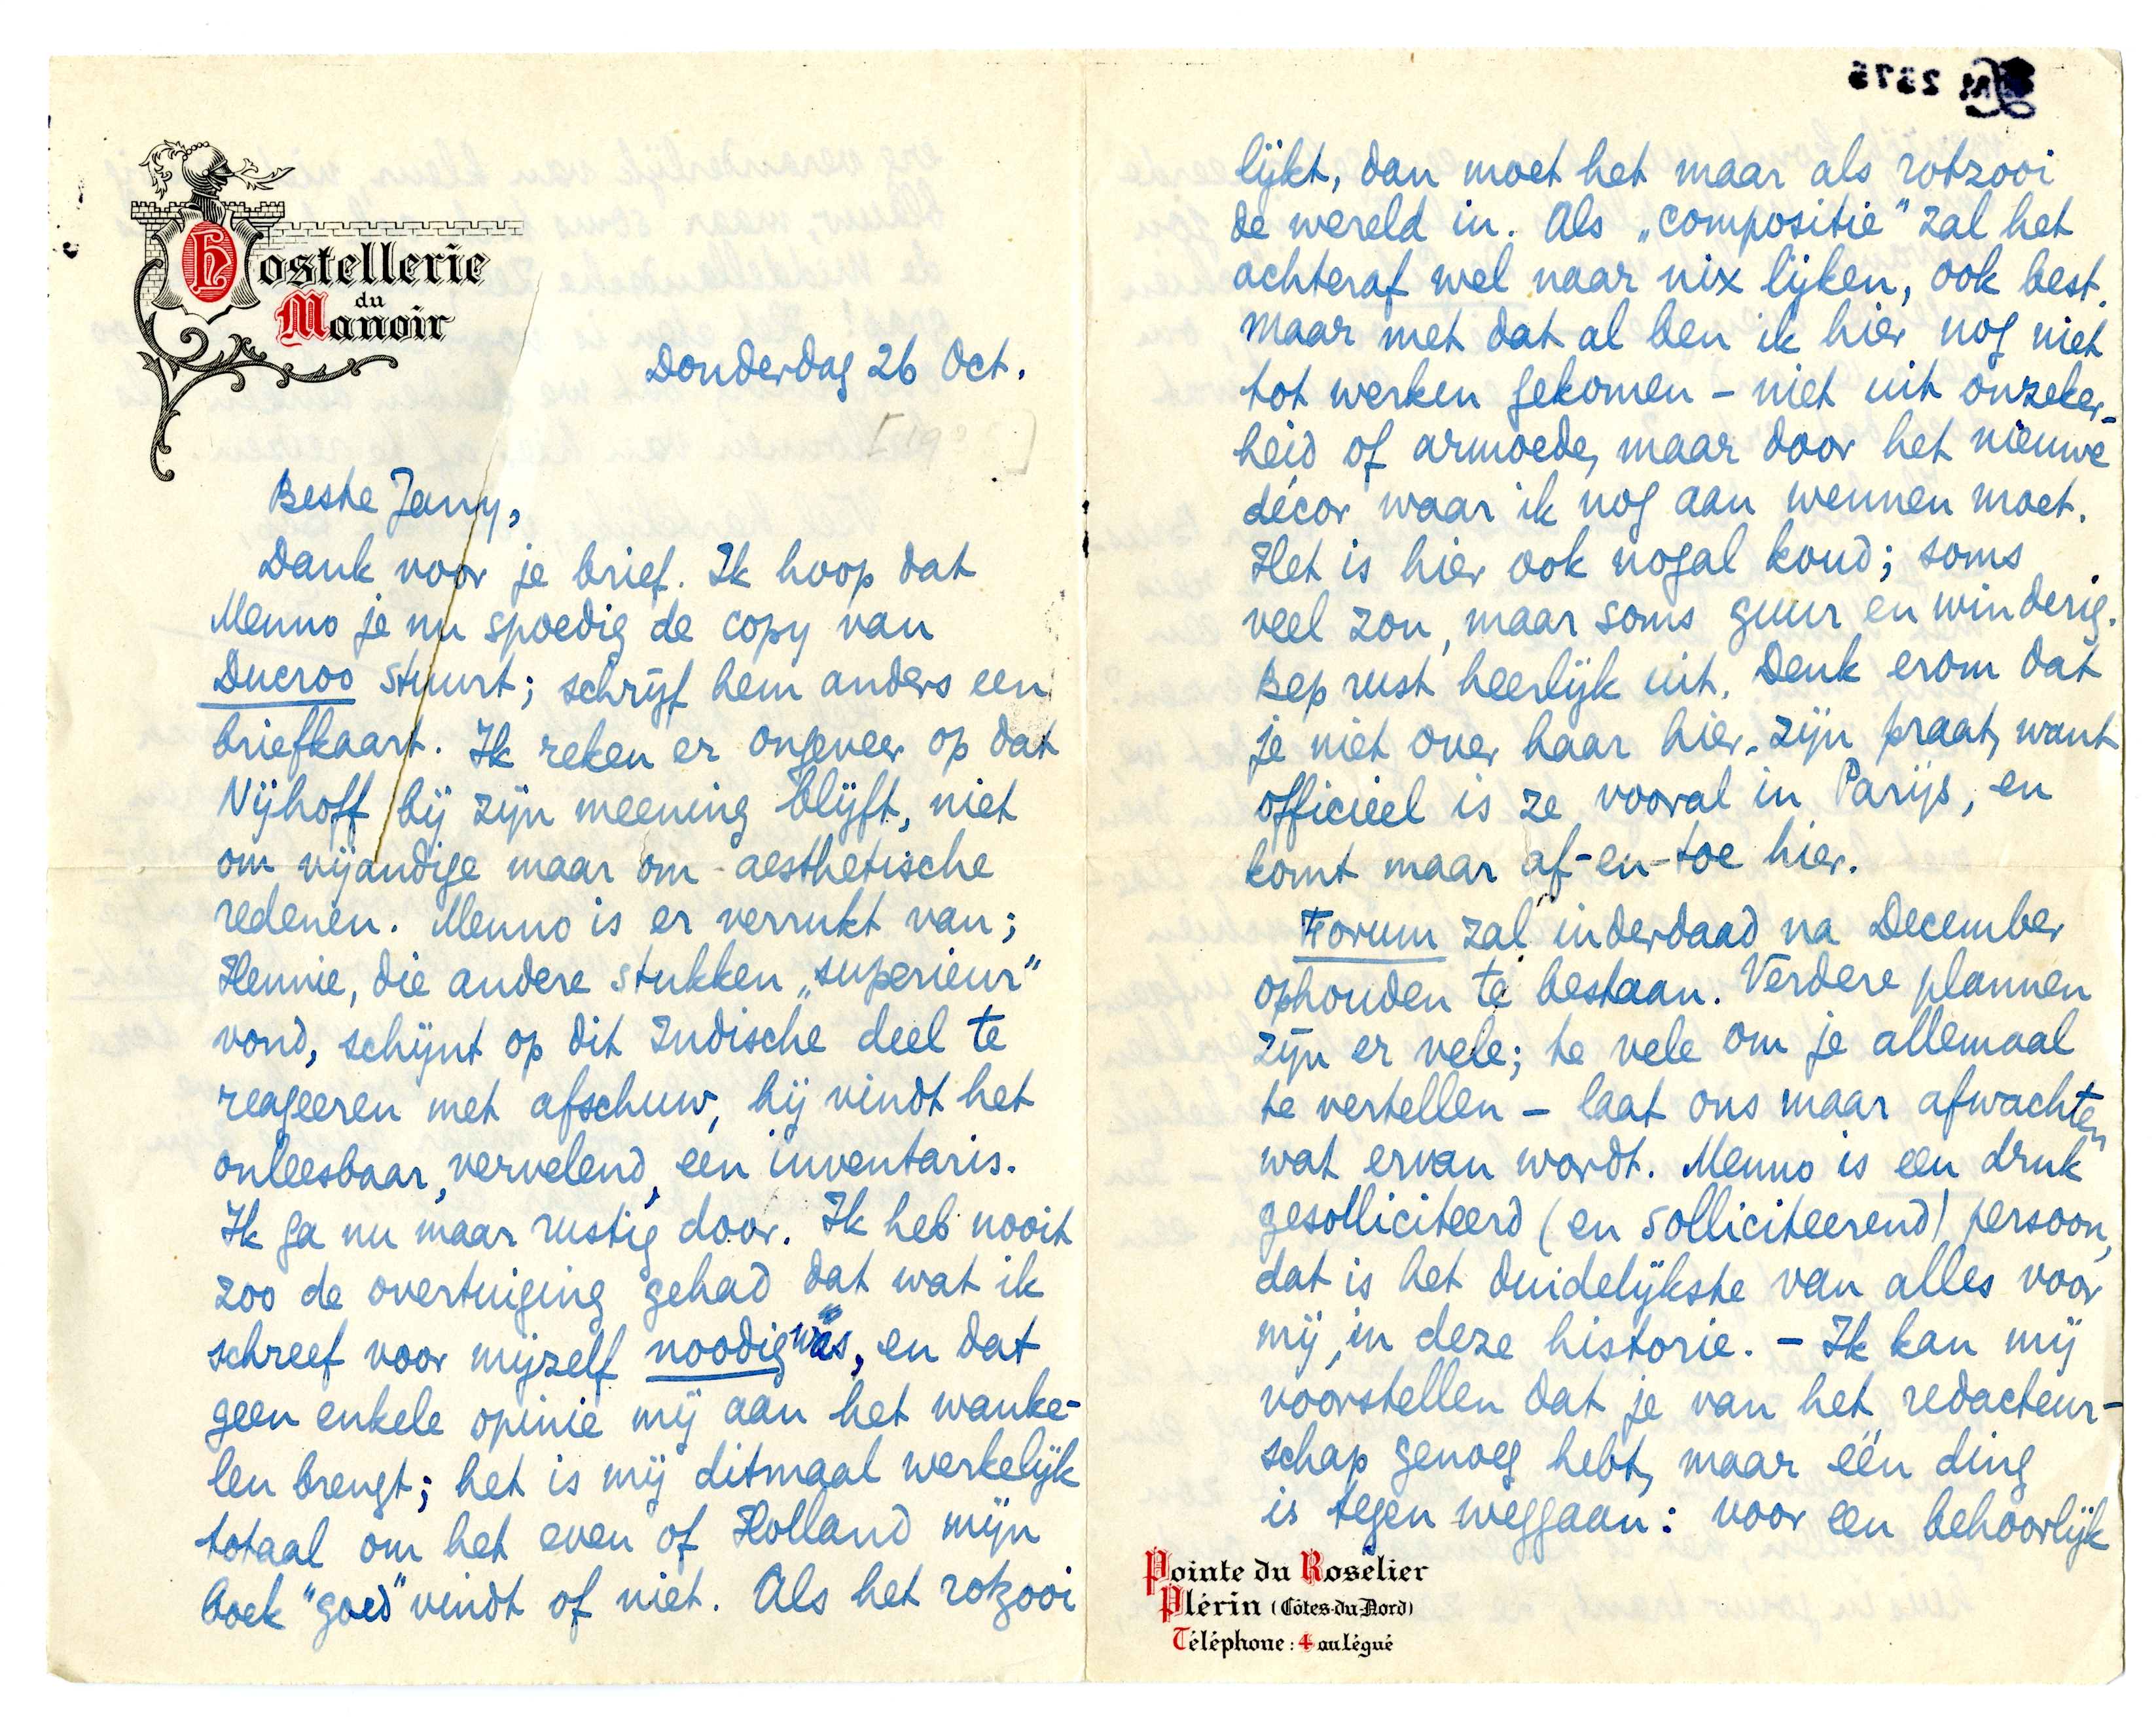 Hostellerie
du
Manoir
Donderdag 26 Oct.
[193 ]
Beste Jany,
Dank voor je brief. Ik hoop dat
Menno je nu spoedig de copy van
Ducroo stuurt; schrijf hem anders een
briefkaart. Ik reken er ongeveer op dat
Nijhoff bij zijn meening blijft, niet
om vijandige maar om aesthetische
redenen. Menno is er verrukt van;
Hennie, die andere stukken „superieur"
vond, schijnt op dit Indische deel te
reageeren met afschuw, hij vindt het
onleesbaar, vervelend, een inventaris.
Ik ga nu maar rustig door. Ik heb nooit
zoo de overtuiging gehad dat wat ik
schreef voor mijzelf noodig was, en dat
geen enkele opinie mij aan het wanke-
len brengt; het is mij ditmaal werkelijk
totaal om het even of Holland mijn
boek "goed" vindt of niet. Als het rotzooi
lijkt, dan moet het maar als rotzooi
de wereld in. Als „compositie" zal het
achteraf wel naar nix lijken, ook best.
Maar met dat al ben ik hier nog niet
tot werken gekomen – niet uit onzeker-
heid of armoede, maar door het nieuwe
décor waar ik nog aan wennen moet.
Het is hier ook nogal koud; soms
veel zon, maar soms guur en winderig.
Bep rust heerlijk uit. Denk erom dat
je niet over haar hier-zijn praat, want
officieel is ze vooral in Parijs, en
komt maar af-en-toe hier.
Forum zal inderdaad na December
ophouden te bestaan. Verdere plannen
zijn er vele; te vele om je allemaal
te vertellen – laat ons maar afwachten
wat ervan wordt. Menno is een druk
gesolliciteerd (en solliciteerend) persoon,
dat is het duidelijkste van alles voor
mij, in deze historie. – Ik kan mij
voorstellen dat je van het redacteur-
schap genoeg hebt, maar één ding
is tegen weggaan: voor een behoorlijk
Pointe du Roselier
Plérin (Côtes-du-Nord)
Téléphone: 4 au Légué